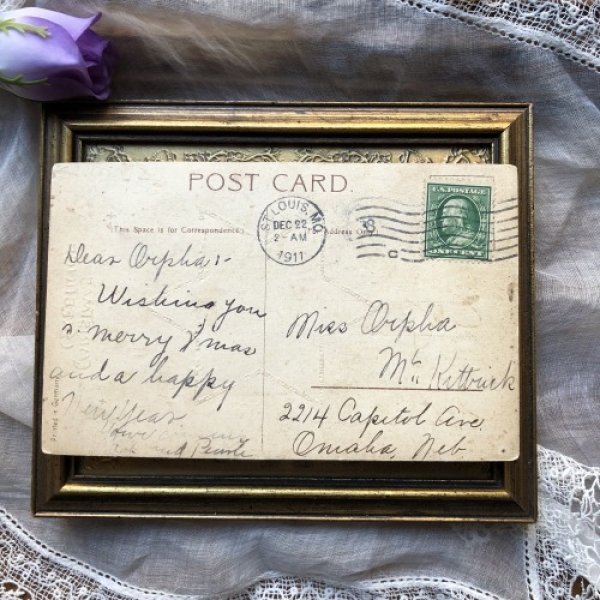 POST CARD.
(This Space is for Correspondence)
Address Only.
ST. LOUIS, MO.
DEC 22
2-AM
1911
8
C
U.S. POSTAGE
ONE CENT
Dear Orpha:-
Wishing you
a merry Xmas
and a happy
New Year
Miss Orpha
McKittrick
2214 Capitol Ave.
Omaha, Neb
Printed in Germany